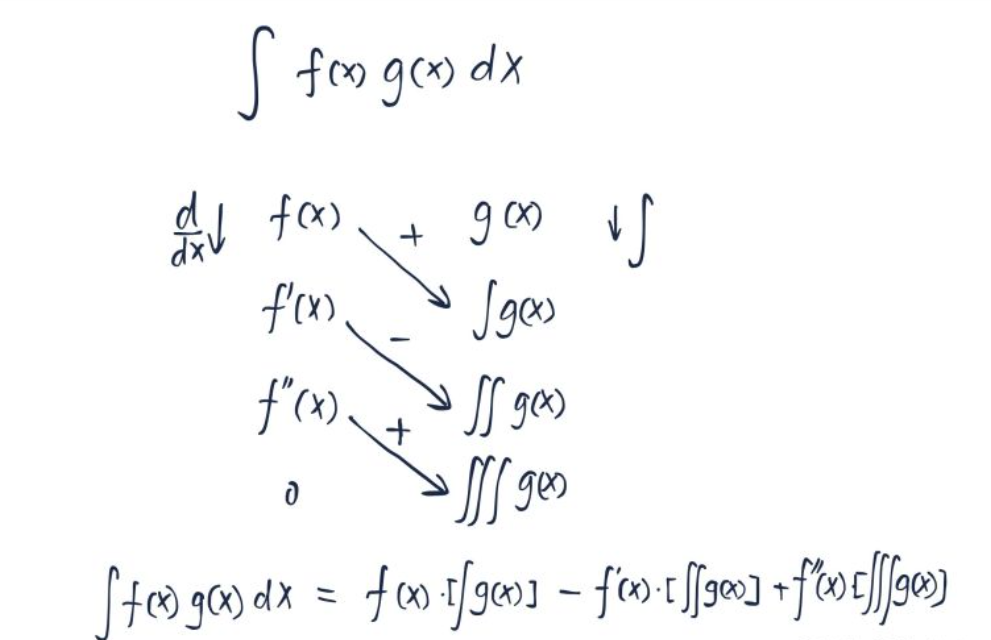 ∫ f(x) g(x) dx
d/dx ↓ f(x) + g(x) ↓ ∫
f'(x) - ∫g(x)
f''(x) + ∬ g(x)
0 ∭ g(x)
∫ f(x) g(x) dx = f(x) · [∫g(x)] - f'(x) · [∬g(x)] + f''(x) [∭g(x)]